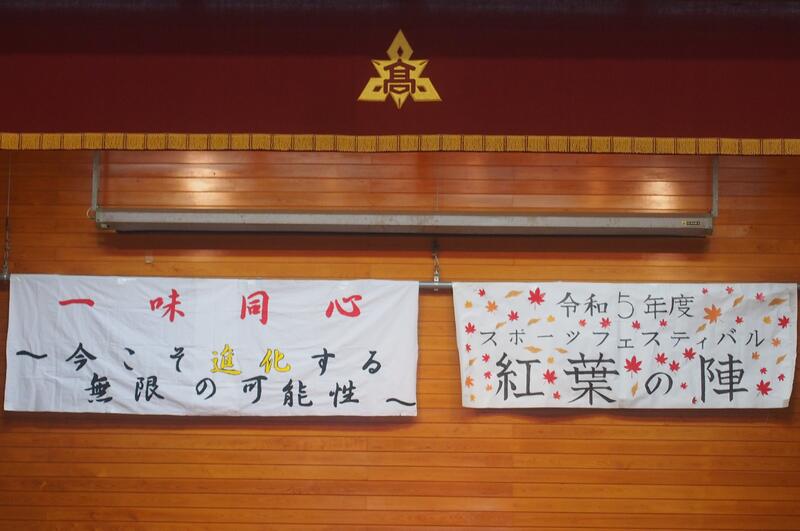 高
一味同心
～今こそ進化する
無限の可能性～
令和5年度
スポーツフェスティバル
紅葉の陣